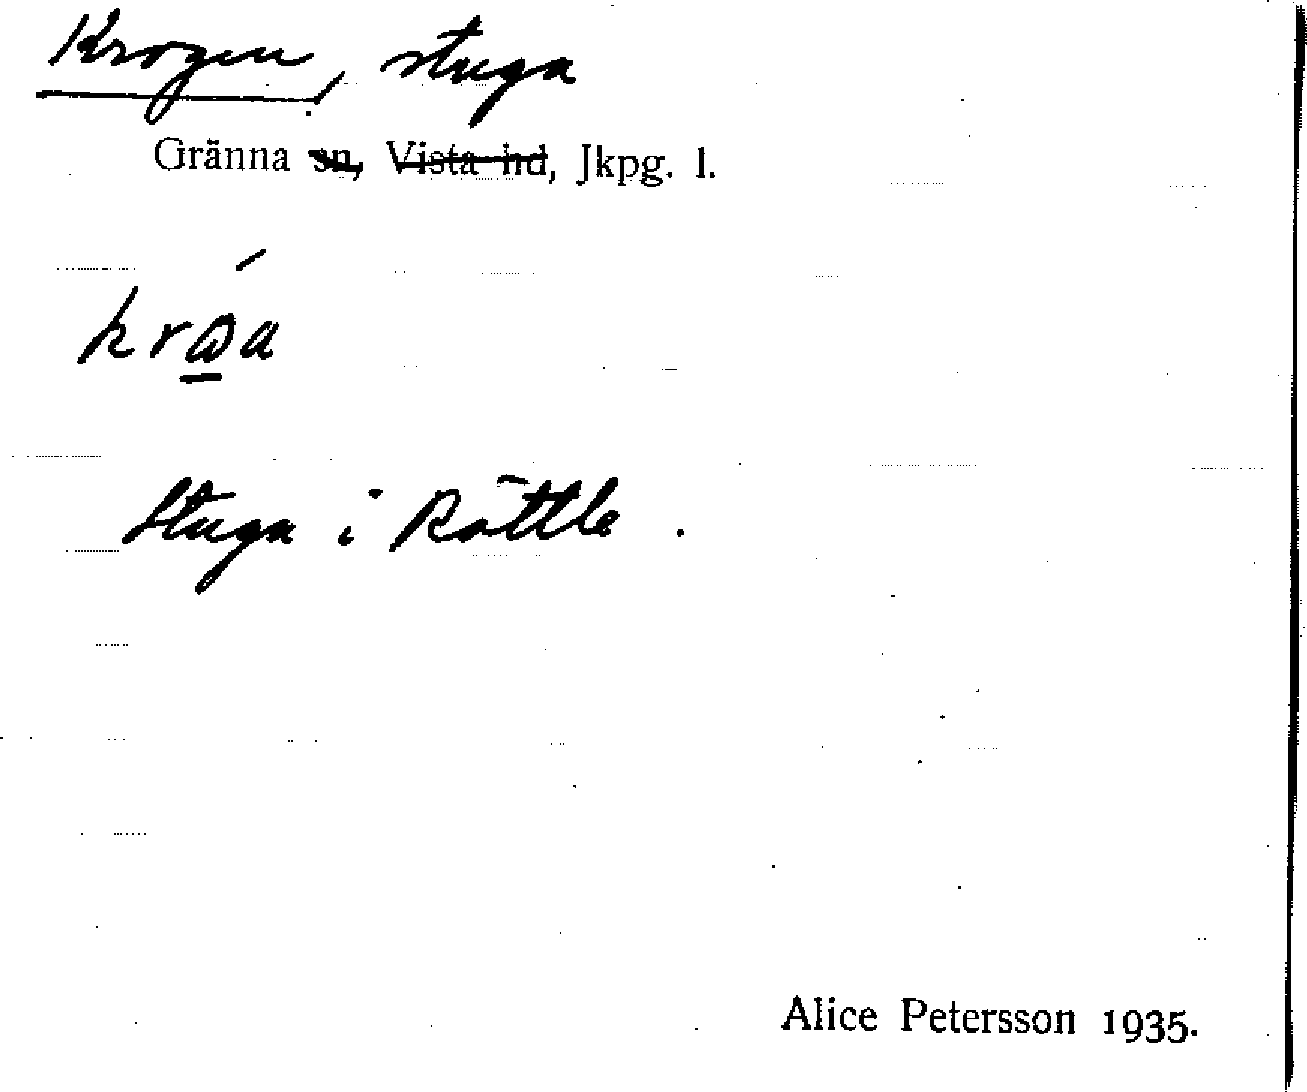 Krogen, stuga
Gränna sn, Vista hd, Jkpg. l.
Stuga i Röttle.
Alice Petersson 1935.